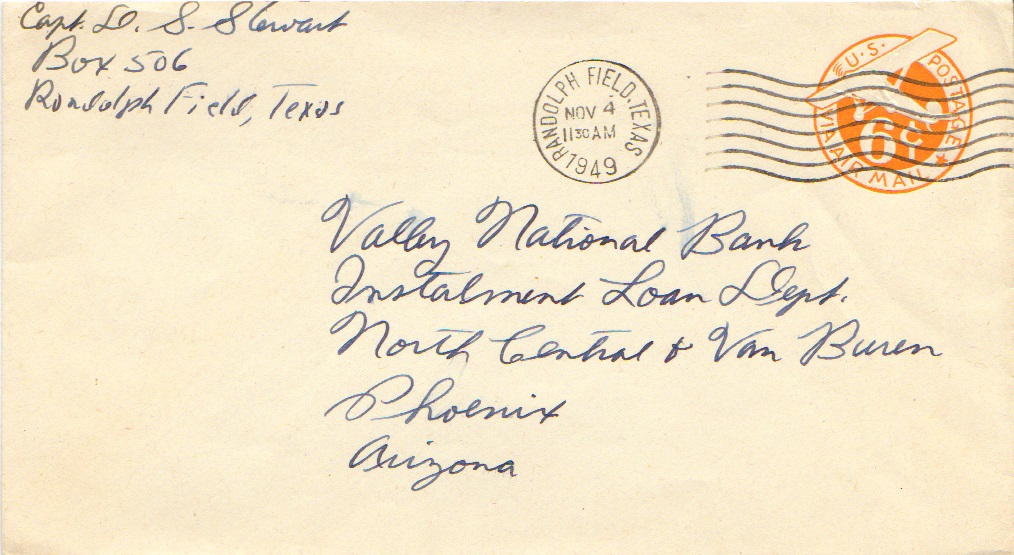 Capt. D. S. Stewart
Box 506
Randolph Field, Texas
RANDOLPH FIELD, TEXAS
NOV 4
1130 AM
1949
U.S. POSTAGE
6¢
VIA AIR MAIL
Valley National Bank
Instalment Loan Dept.
North Central & Van Buren
Phoenix
Arizona